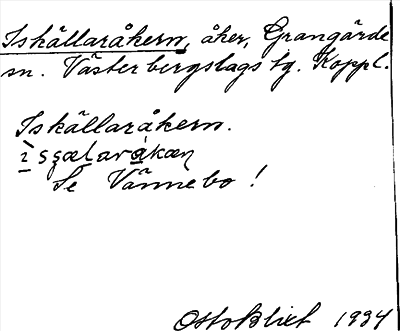 Iskällaråkern, åker, Grangärde
sn. Västerbergslags tg. Koppl.
Iskällaråkern.
Se Vännebo!
Otto Blixt 1934